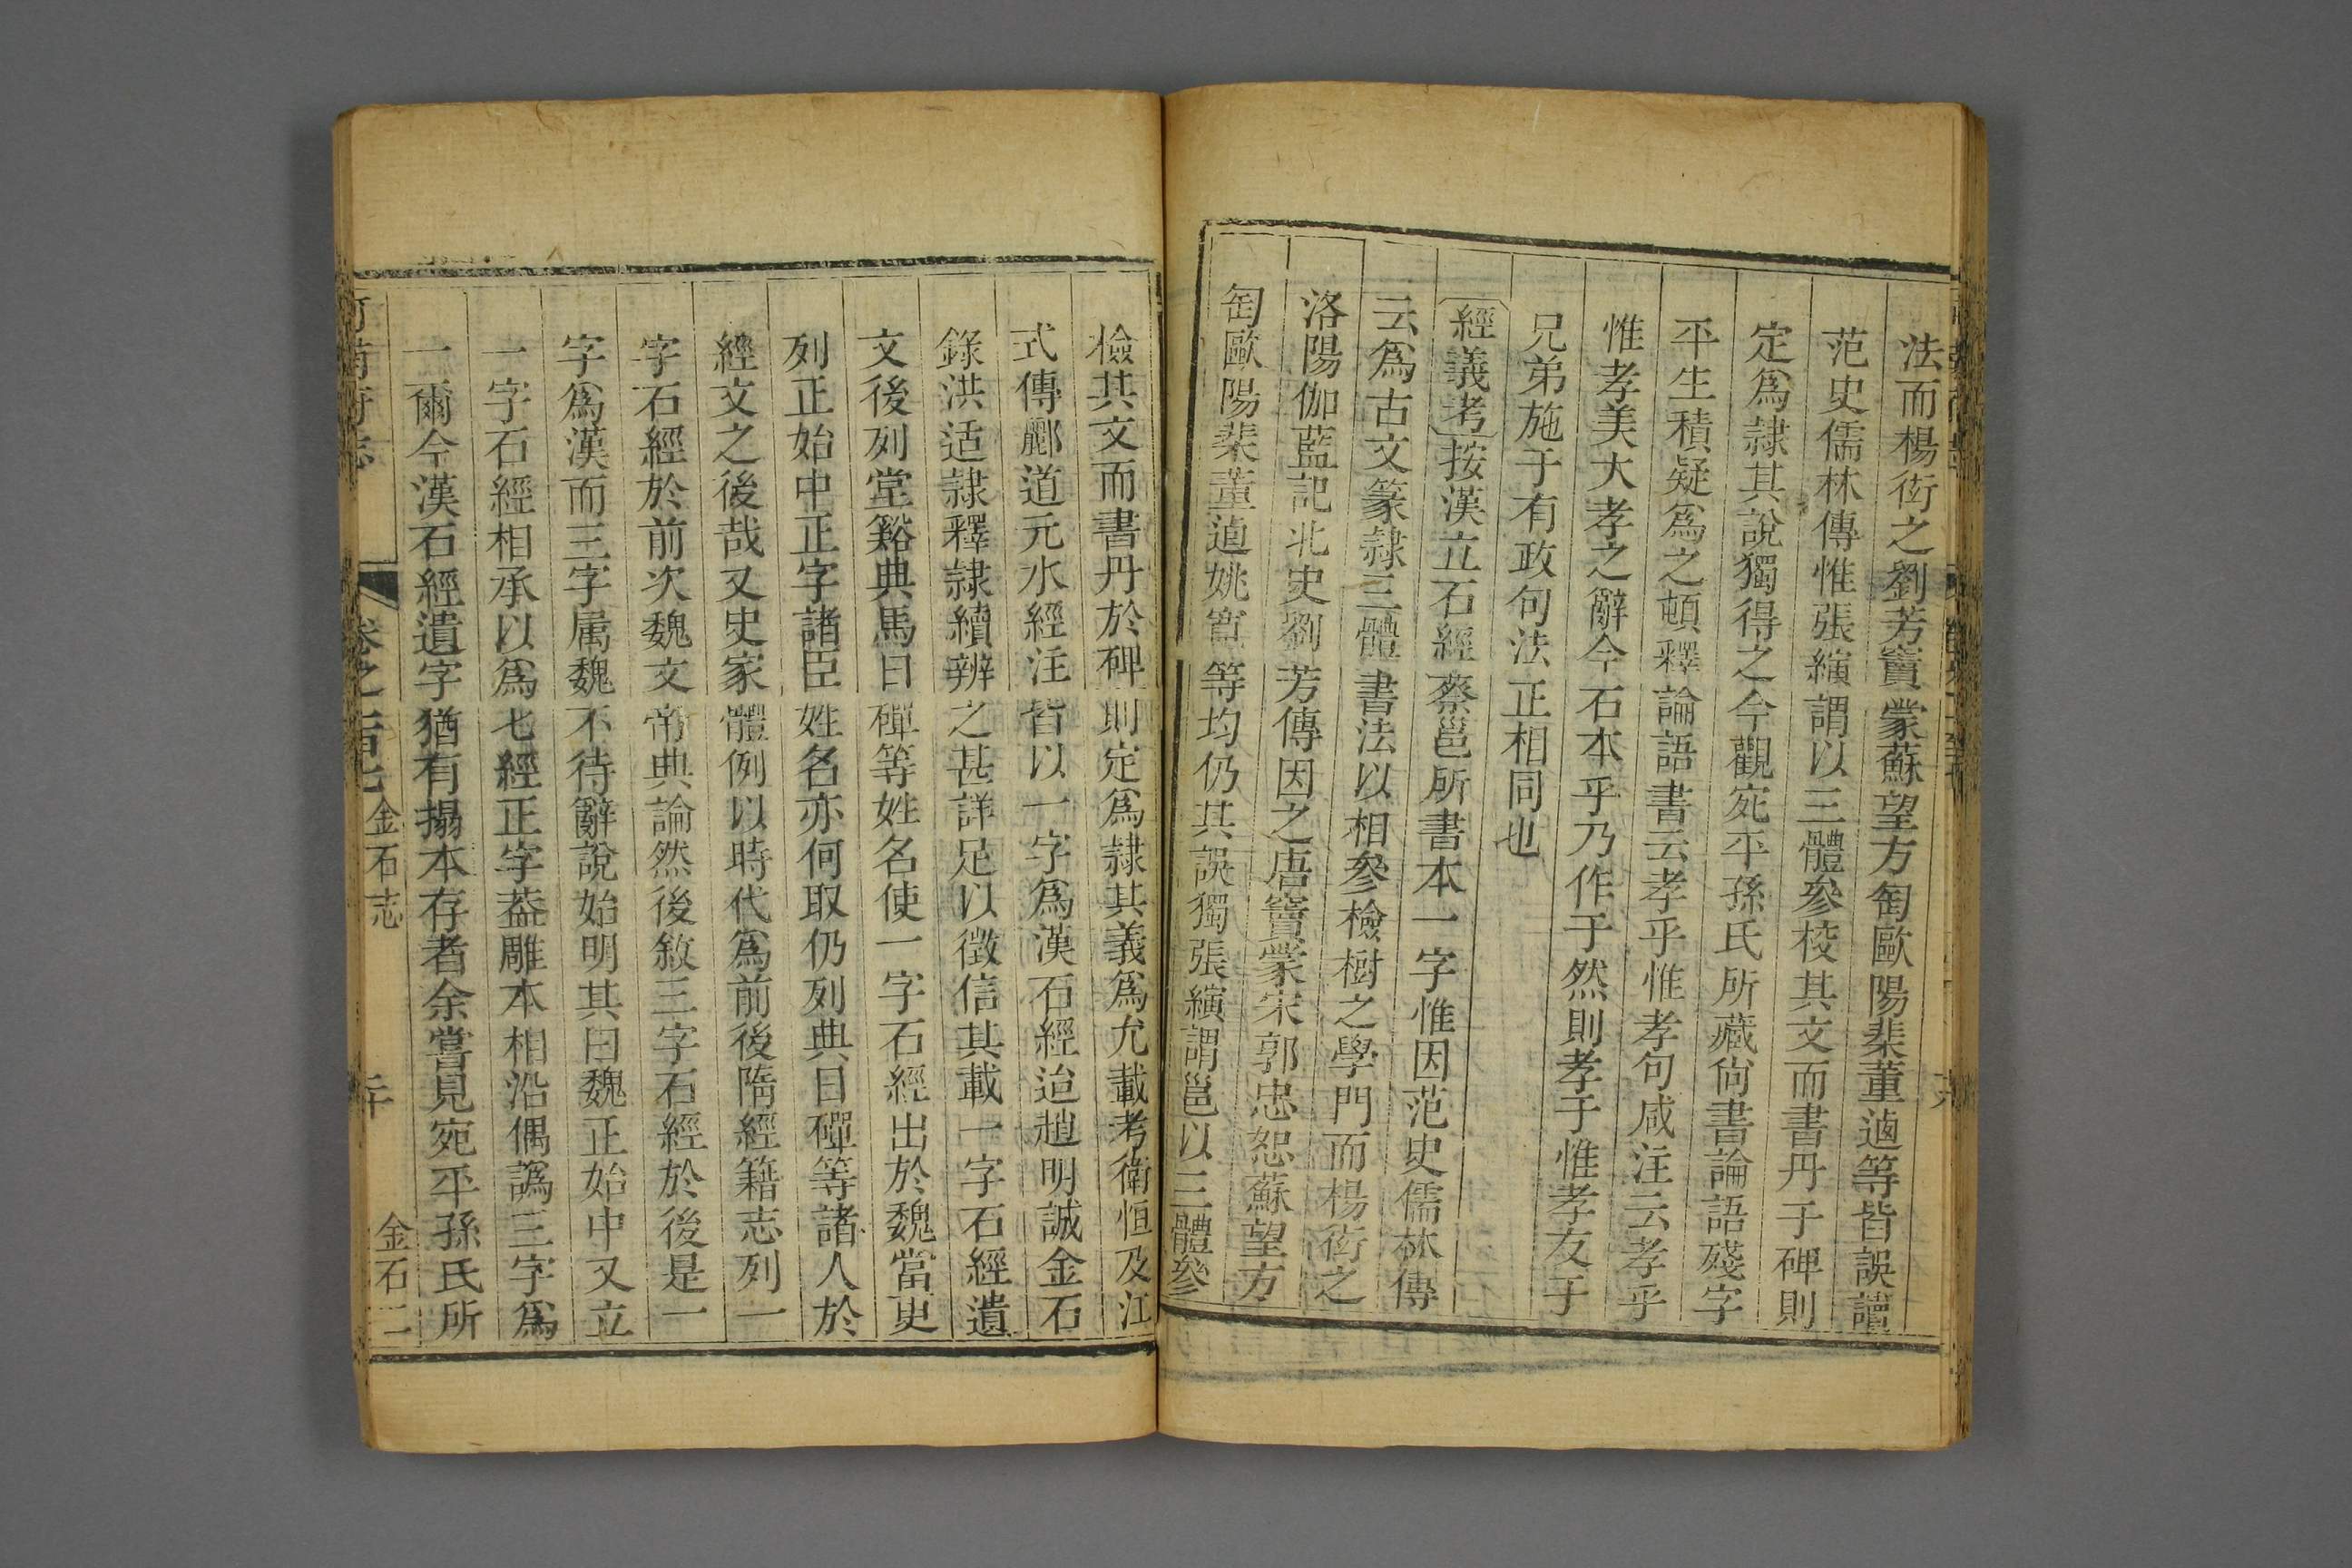 法而楊衒之劉芳竇蒙蘇望方匋歐陽棐董逌等皆誤讀
范史儒林傳惟張縯謂以三體參校其文而書丹于碑則
定爲隷其說獨得之今觀宛平孫氏所藏尙書論語殘字
平生積疑爲之頓釋論語書云孝乎惟孝句咸注云孝乎
惟孝美大孝之辭今石本乎乃作于然則孝于惟孝友于
兄弟施于有政句法正相同也
經義考按漢立石經蔡邕所書本一字惟因范史儒林傳
云爲古文篆隷三體書法以相參檢樹之學門而楊衒之
洛陽伽藍記北史劉芳傳因之唐竇蒙宋郭忠恕蘇望方
匋歐陽棐董逌姚寬等均仍其誤獨張縯謂邕以三體參
檢其文而書丹於碑則定爲隷其義爲允載考衛恒及江
式傳酈道元水經注皆以一字爲漢石經迨趙明誠金石
錄洪适隷釋隷續辨之甚詳足以徵信其載一字石經遺
文後列堂谿典馬日磾等姓名使一字石經出於魏當更
列正始中正字諸臣姓名亦何取仍列典日磾等諸人於
經文之後哉又史家體例以時代爲前後隋經籍志列一
字石經於前次魏文帝典論然後敘三字石經於後是一
字爲漢而三字屬魏不待辭說始明其曰魏正始中又立
一字石經相承以爲七經正字葢雕本相沿偶譌三字爲
一爾今漢石經遺字猶有搨本存者余嘗見宛平孫氏所
河南府志 卷之一百七 金石志 二十 金石二